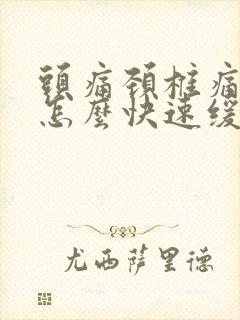 頭痛頚椎痛
怎麼快速緩
尤西薩里德